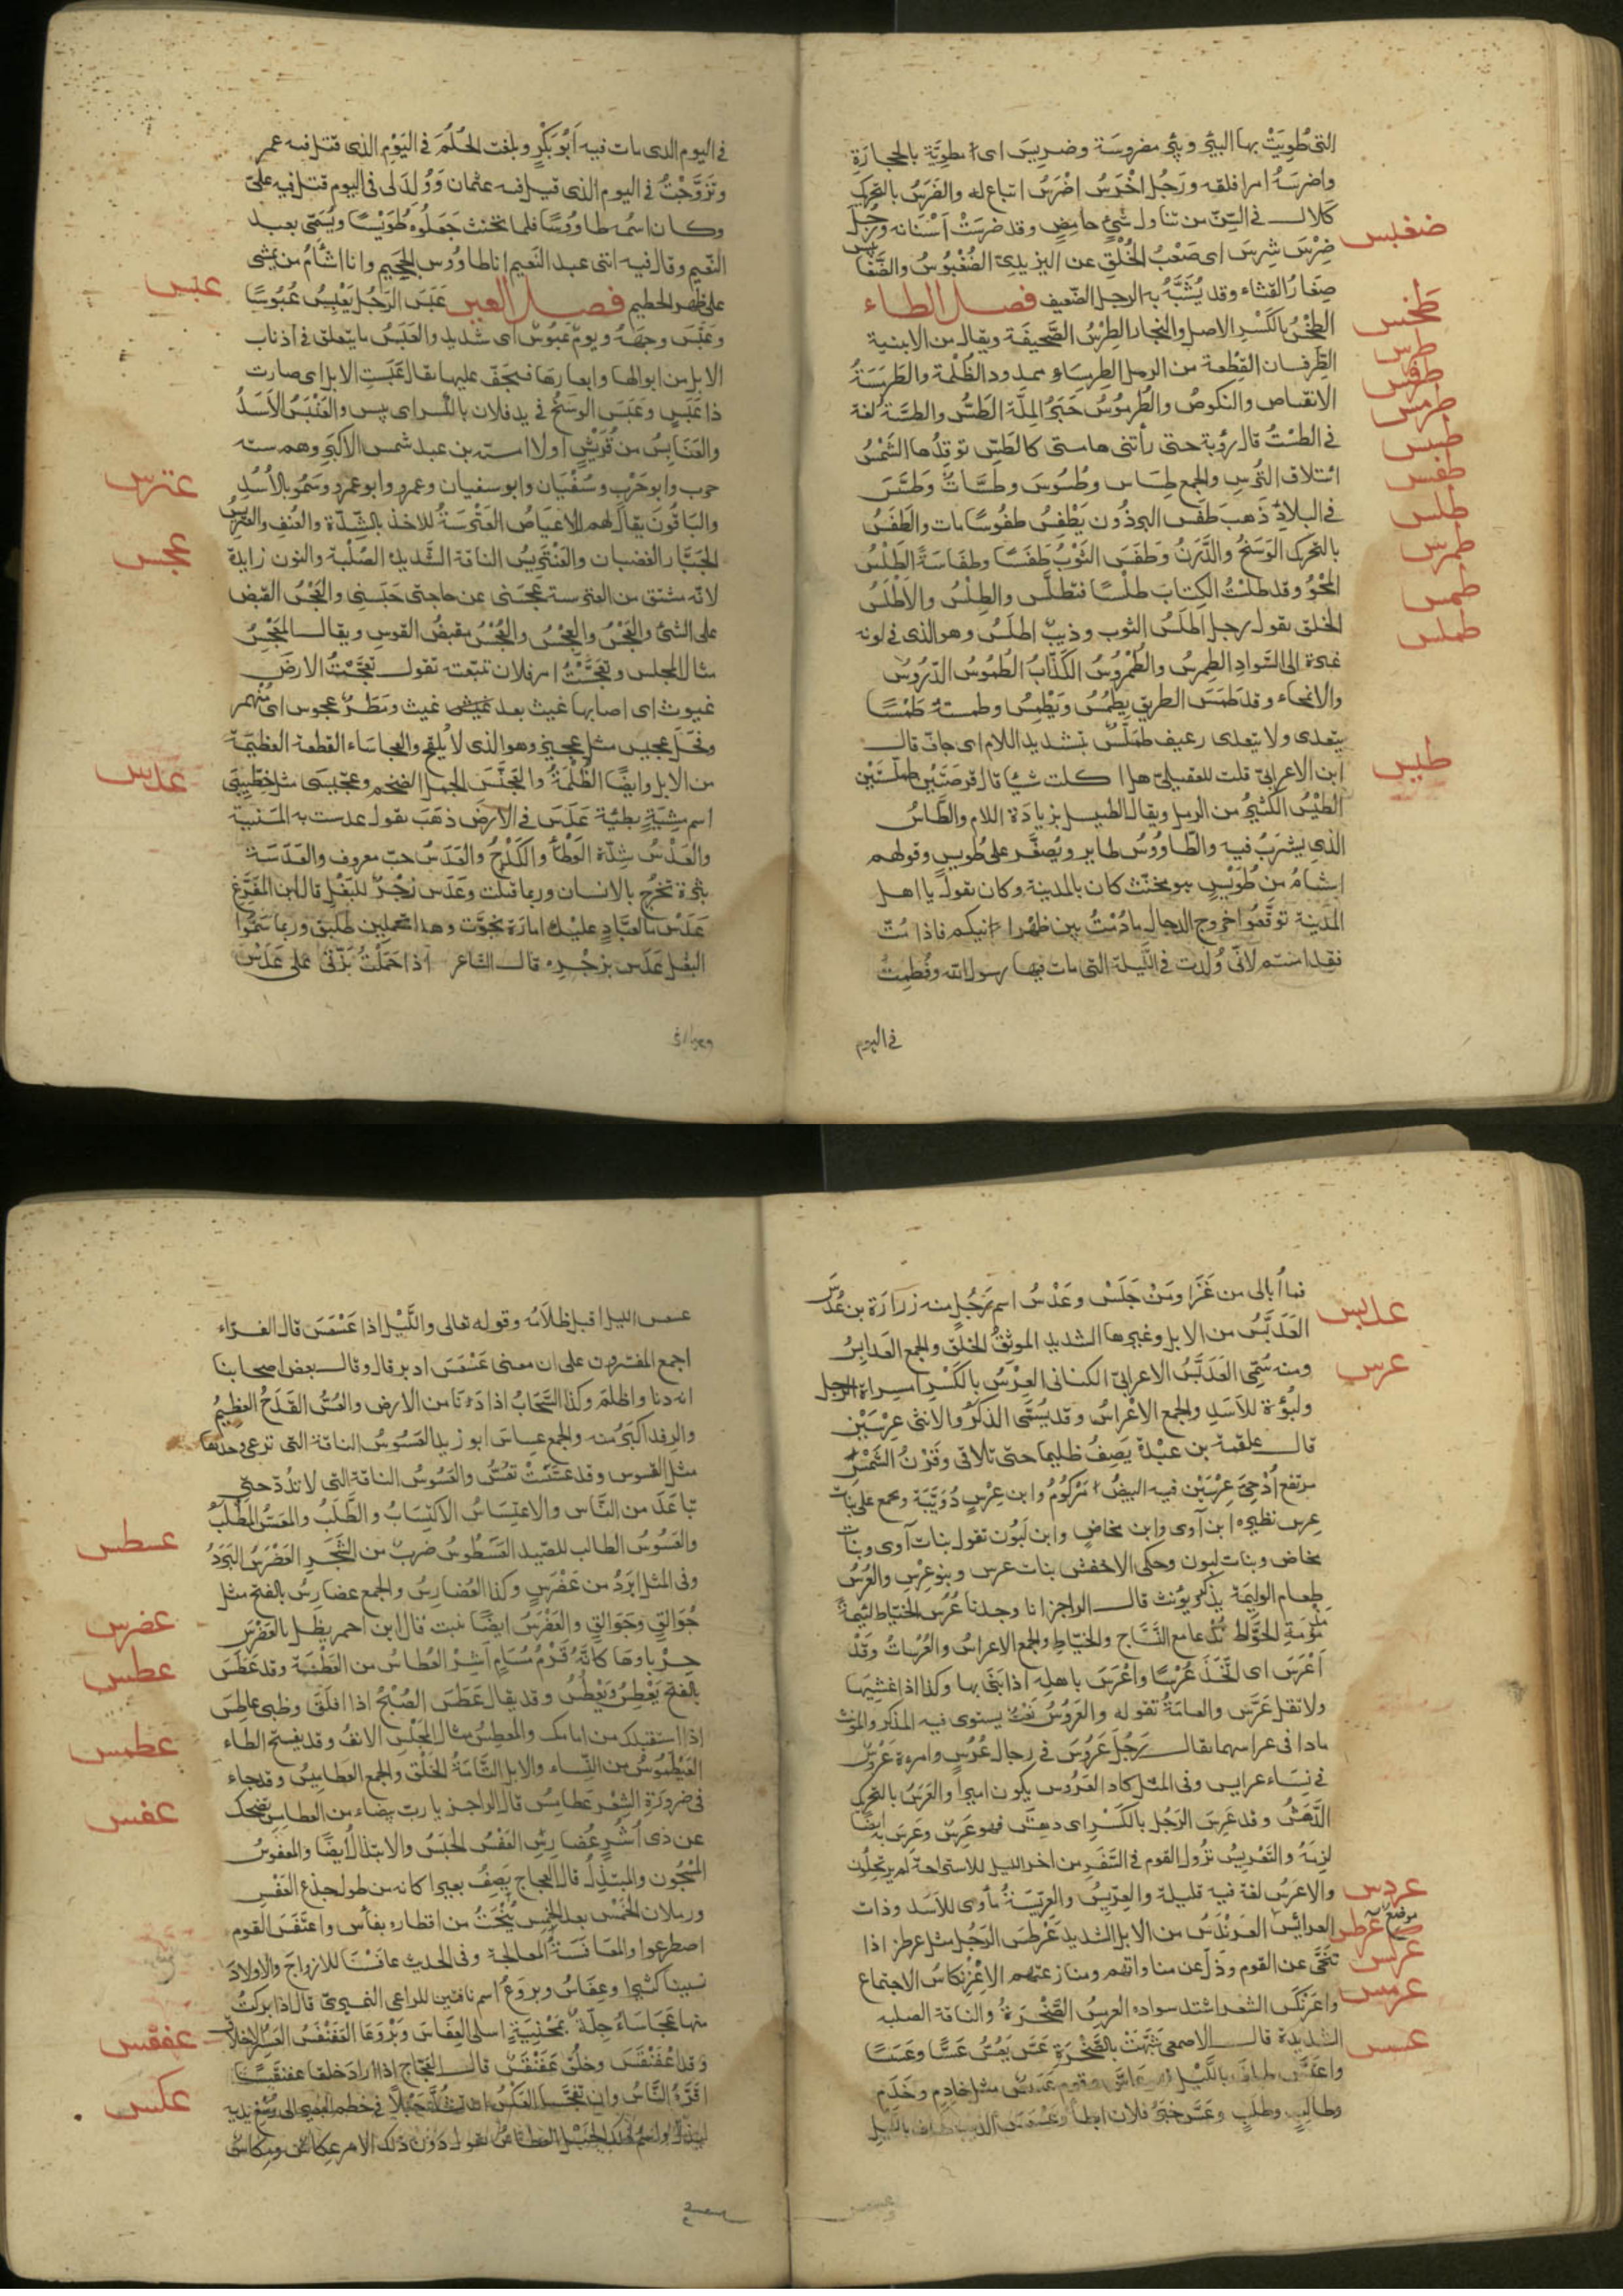 التى طُوِيَتْ بها البئر وبئر مضروسَة وضريس اى مطويّة بالحجارَةِ
واضرسَهُ امرا فلقه ورَجُل اخْرَسُ اضْرَسُ اتباع له والضَرَسُ بالتحريك
ضغبس
كَلال فى السِّنّ من تناول شئٍ حامِضٍ وقد ضَرِسَتْ اَسْنَانه ورَجُلٌ
ضَرِسٌ شَرِسٌ اى صَعْبُ الخُلْقِ عن اليزيدى الضُغْبُوسُ والضَّغَابِيسُ
صِغَارُ القثاء وقد يُشَبَّهُ به الرجل الضّعيف فصل الطاء
طخس
الطِخْسُ بالكَسْرِ الاصل والنجار الطِرْسُ الصَّحِيفَة ويقال من الابنية
طرس
الطِّرفسان القِطْعة من الرمل الطِرمِسَاء ممدود الظُلْمَة والطَرمَسَةُ
طرفس
الانقباض والنكوصُ والطُرْمُوسُ خَبَزُ المِلَّة الطَسُّ والطسَّةُ لغة
طرمس
فى الطسْتُ قال رؤبة حتى رأتنى هامتى كالطَسِّ توقِدُها الشَمْسُ
طسس
ائتلاق التُّرسِ والجمع طِسَاس وطُسُوسَ وطَسَّاتٌ وطَسَّسَ
طفس
فى البلادِ ذَهَب طَفَسَ البرذَون يَطْفِسُ طفُوسًا مات والطَفَسُ
طلس
بالتحرك الوَسَخُ والدَّرَنُ وطَفَسَ الثَوْبُ طَفَسًا وطفَاسَةً الطَلْسُ
طمرس
المَحْوُ وقد طَلَسْتُ الكِتابَ طلْسًا فتطلَّس والطِلْسُ والاَطْلَسُ
طمس
الخلق تقول رجل اطلَسُ الثوب وذيبٌ اطلَسُ وهو الذى فى لونه
طملس
غبرة الى السَّوادِ الطِمرِسُ والطُمْرُوسُ الكَذَّابُ الطُمُوسُ الدُّرُوسُ
والانمحاء وقد طَمَسَ الطريق يطمُسُ ويَطْمِسُ وطمسته طَمْسًا
يتعدى ولا يتعدى رغيف طَمَلَّسٌ بتشديد اللام اى جافّ قال
طيس
ابن الاعرابىّ قلت للعقيلىّ هل اكلت شيًا قال قرصَتَيْنِ طملّسَتَيْنِ
الطَيْسُ الكَثِيرُ من الرمل ويقال الطيسل بزيادَة اللام والطَّاسُ
الذى يشرَبُ فيه والطَّاوُوسُ طاير ويُصغَّر على طُوَيسٍ وقولهم
اشأَمُ من طُوَيْسٍ هو مخنّث كان بالمدينة وكان يقول يا اهل
المَدينة توقَّعُوا خروج الدجال ما دُمْتُ بين ظهرانيكم فاذا مُتّ
فقد امنتم لانّى وُلِدت فى اللَّيلة التى مات فيها رسول الله وفُطِمتُ
فى اليوم
فى اليوم الذى مات فيه اَبُو بَكْرٍ وبلغت الحُلُمَ فى اليَوْمِ الذى قتل فيه عمر
وتَزَوَّجْتُ فى اليوم الذى قتل فيه عثمان ووُلِدَ لى فى اليوم قتل فيه علىّ
وكان اسمُه طاوُوسًا فلما تخنث جَعَلُوه طُوَيْسًا ويُسَمّى بعبد
النّعيم وقال فيه انّنى عبد النّعيم انا طاوُوس الجحيم وانا اشأَمُ من يمشى
عبس
على ظهر الحطيم فصل العين عَبَسَ الرَجُل يَعْبِسُ عُبُوسًا
وعَبَّسَ وجهَهُ ويومٌ عَبُوسٌ اى شديد والعَبَسُ ما يتعلق فى اذناب
الابل من ابوالها وابعارهَا فيجفّ عليها يقال عَبِسَتِ الابل اى صارت
ذا عَبَسٍ وعَبَسَ الوَسَخُ فى يد فلان بالكسر اى يبس والعَنْبَسُ الاَسَدُ
والعَنَابِسُ من قُرَيْشٍ اولاد اميّه بن عبد شمس الاكبَر وهم ستّه
عترس
حرب وابو حَرْبٍ وسُفْيَان وابو سفيان وعمرو وابو عمرو وسَمُّو بالأُسُدِ
والبَاقُونَ يقال لهم الاعيَاصُ العَتْرَسَةُ الاخذ بالشِّدّة والعُنفِ والعِترِيسُ
عجس
الجَبَّار الغضبان والعَنْتَرِيسُ الناقة الشَّديدة الصُلْبة والنون زايدة
لانّه مشتق من العترسة عَجَسَنى عن حاجتى حَبَسَنِى والعَجْسُ القبض
على الشئ والعَجْسُ والعِجْسُ والعُجْسُ مقبضُ القوس ويقال المَعْجِسُ
مثال المجلس وتعَجَّسْتُ امر فلان تتبّعته تقول تعَجَّسْتُ الارضَ
غيوث اى اصابها غيث بعد غيث ومَطَرٌ عجوس اى مُنْهمر
وفحَل عجيس مثل عجيز وهو الذى لا يُلقِح والعجاسَاء القطعة العظيمة
عدس
من الابل وايضًا الظُلْمَةُ والعَجَنَّسَ الجمل الضخم وعجِّيسَى مثل خِطِّيبَى
اسم مِشيَةٍ بطيئة عَدَسَ فى الارض ذهَبَ يقول عدست به المَنيّة
والعَدْسُ شِدّة الوَطْأ والكَدْحُ والعَدَسُ حبّ معروف والعَدَسَة
بَثْرة تخرُج بالانسان وربما قتلت وعَدَس زجْرٌ للبَغْلِ قال ابن المفرّغ
عَدَسْ ما لعَبَّادٍ عليك امارَة نجوْت وهذا تحملين طليق وربما سَمُّوا
البغل عَدَس بزجْرِه قال الشاعر اذا حَمَلْتُ بِزَّتى على عَدَسْ
عدبس
فما أبالى من غَزَا ومَنْ جَلَسْ وعَدْسُ اسم رَجُلٍ منه زرارَة بن عُدُسَ
العَدَبَّسُ من الابل وغيرها الشديد الموثقُ الخلق والجمع العَدابِسُ
عرس
ومنه سُمِّى العَدَبَّسُ الاعرابىّ الكنانى العِرْسُ بالكَسْرِ امراة الرجل
ولبُؤَة للاَسَدِ والجمع الاعْراسُ وقد يُسَمَّى الذكر والانثى عِرْسَيْن
قال علقمة بن عبْدة يَصِفُ ظليما حتى تلاقى وقَرْنُ الشَمْسُ
مرتفع أُدْحِىَّ عِرْسَيْنِ فيه البيضُ مَرْكُومُ وابن عِرْسٍ دُوَيْبَّة ويجمع على بنات
عِرس نظيره ابن آوى وابن مخاضٍ وابن لَبُون تقول بنات آوى وبنات
مخاض وبنات لبون وحكى الاخفش بنات عرس وبنو عِرْسِ والعُرْسُ
طعام الوليمَة يذكر ويُؤنث قال الراجز انا وجدنا عُرُسَ الحَنّاطِ لئيمةً
مذمومَة الحُوّاطِ نُدْعا مع النَّسَّاج والخيّاطِ والجمع الاعراسُ والعُرُسَاتُ وقَدْ
اَعْرَسَ اى اتَّخَذَ عُرْسًا وأعْرَسَ باهلِه اذا بَنَى بها وكذا اذا غشِيَها
ولا تقل عَرَّسَ والعامَةُ تقوله والعَرُوسُ نَعْتٌ يستوى فيه المذكر والمؤنث
ما دا فى عراسهما يقال رَجُل عَرُوسٌ فى رجال عُرُسٍ وامرءة عَرُوسٌ
فى نِسَاء عرايس وفى المثل كاد العَرُوس يكون اميرا والعَرَسُ بالتحريك
الدَّهَشُ وقد عَرِسَ الرَجُل بالكَسْرِ اى دهِشَ فهو عَرِسٌ وعَرِسَ به ايضًا
لزِمَهُ والتَعْرِيسُ نزُول القوم فى السَّفَرِ من اخر الليل للاستراحة ثم يرتحلون
عردس
والاعرَسُ لغة فيه قليلة والعِرّيسُ والعِرّيسَةُ مأوى للاَسَد وذات
عرطس موضع
العرائس العَرَنْدَسُ من الابل الشديد عَرْطَسَ الرَجُل مثل عرطز اذا
عركس
تنَحَّى عن القوم وذلّ عن مناواتهم ومنازعتهم الاعْرِنكاسُ الاجتماع
عرمس
واعرَنكَسَ الشعر اشتد سواده العِرمِسُ الصَّخْرَةُ والناقة الصلبه
عسس
الشَديدة قال الاصمعى شُبِّهَتْ بالصَّخْرَةِ عَسَّ يَعُسُّ عَسًّا وعَسَسًا
واعتَسَّ طاف بالَّيْل وقوم عَسَسٌ مثل خادِمٍ وخَدَم
وطالِبٍ وطلَبٍ وعَسَّ خبَرُ فلان ابطأ وعَسْعَسَ الذئب طاف بالليل
عسعس الليل اقبل ظلاَمُه وقوله تعالى والَّيْلِ اذا عَسْعَسَ قال الفرّاء
اجمع المفسرون على ان معنى عَسْعَسَ ادبر قال وقال بعض اصحابنا
انه دنا واظلمَ وكذا السَّحَابُ اذا دَنَا من الارض والعُسُّ القَدَحُ العظيمُ
والرفد اكبَرُ منه والجمع عِساسَ ابو زيد العَسُوسُ الناقة التى ترعى وحدها
مثل القسوس وقد عَسَّتْ تعُسُّ والعَسُوسُ الناقة التى لا تَدُرّ حتّى
تباعَدَ من النَّاس والاعتِسَاسُ الاكتِسَابُ والطَّلَبُ والمعَسُّ المطْلَبُ
عسطس
والعَسُوسُ الطالب للصّيد العَسَطُوسُ ضربٌ من الشجَرِ العَضْرَسُ البَرَدُ
وفى المثل ابرَدُ من عَضْرَسٍ وكذا العُضارِسُ والجمع عضارِسُ بالفتح مثل
عضرس
جُوَالِقٍ وجَوَالِقٍ والعَضْرَسُ ايضًا نبت قال ابن احمر يظل بالعَضْرَسِ
عطس
حِرْباوهَا كانَّهُ قَرْمٌ مُسَامٍ اَشِرْ العُطاسُ من العَطْسَة وقد عَطَسَ
بالفتح يَعْطِسُ ويَعْطُسُ وقد يقال عَطَسَ الصُبْحُ اذا افلَقَ وظبى عاطِسٌ
عطمس
اذا استقبلك من امامك والمعطِسُ مثال المَجْلِسِ الانفُ وقد يفتح الطاء
العَيْطَمُوسُ من النِّسَاء والابل التَّامَةُ الخَلْقِ والجمع العَطامِيسُ وقد جاء
عفس
فى ضرورَةِ الشِعْر عَطامِسُ قال الراجز يا ربّ بيضاء من العطامِسِ تضحك
عن ذى اُشُرٍ عُضَارِسِ العَفْسُ الحَبسُ والابتذالُ ايضًا والمعفوسُ
المَسْجُون والمبتَذل قال العجاج يَصِفُ بعيرا كانه من طول جذع العَفْسِ
ورملان الخِمْسِ بعد الخِمْسِ يُنْحَتُ من اقطاره بفأس واعتَفَسَ القوم
اصطرعوا والمعَافَسَةُ المُعالجة وفى الحديث عافَسْنَا للازواج والاولادَ
نسينا كثيرا وعِفَاسُ وبروَعُ اسم ناقتين للراعى النميرى قال اذا بركَتْ
عفقس
منها عَجَاسَاءُ جِلَّةٌ بمَحْنيَةٍ اسلى العِفَاسَ وبَرْوَعَا العَفَنْقَسُ العَسِرُ الاخلاق
وقد اعْفَنْقَسَ وخلُقٌ عَفَنْقَسٌ قال العَجّاج اذا اراد خلقا عفنقَسًا
عكس
اقَرَّهُ النَّاسُ وان تفجَّسَا العَكْسُ ان تشُدَّ حَبْلاً فى خطم البعير الى رُسْغ يديه
ليذلّ واسم ذلك الحَبْل العِكاسُ تقول دُونَ ذلك الامر عِكاسٌ ومِكاسٌ